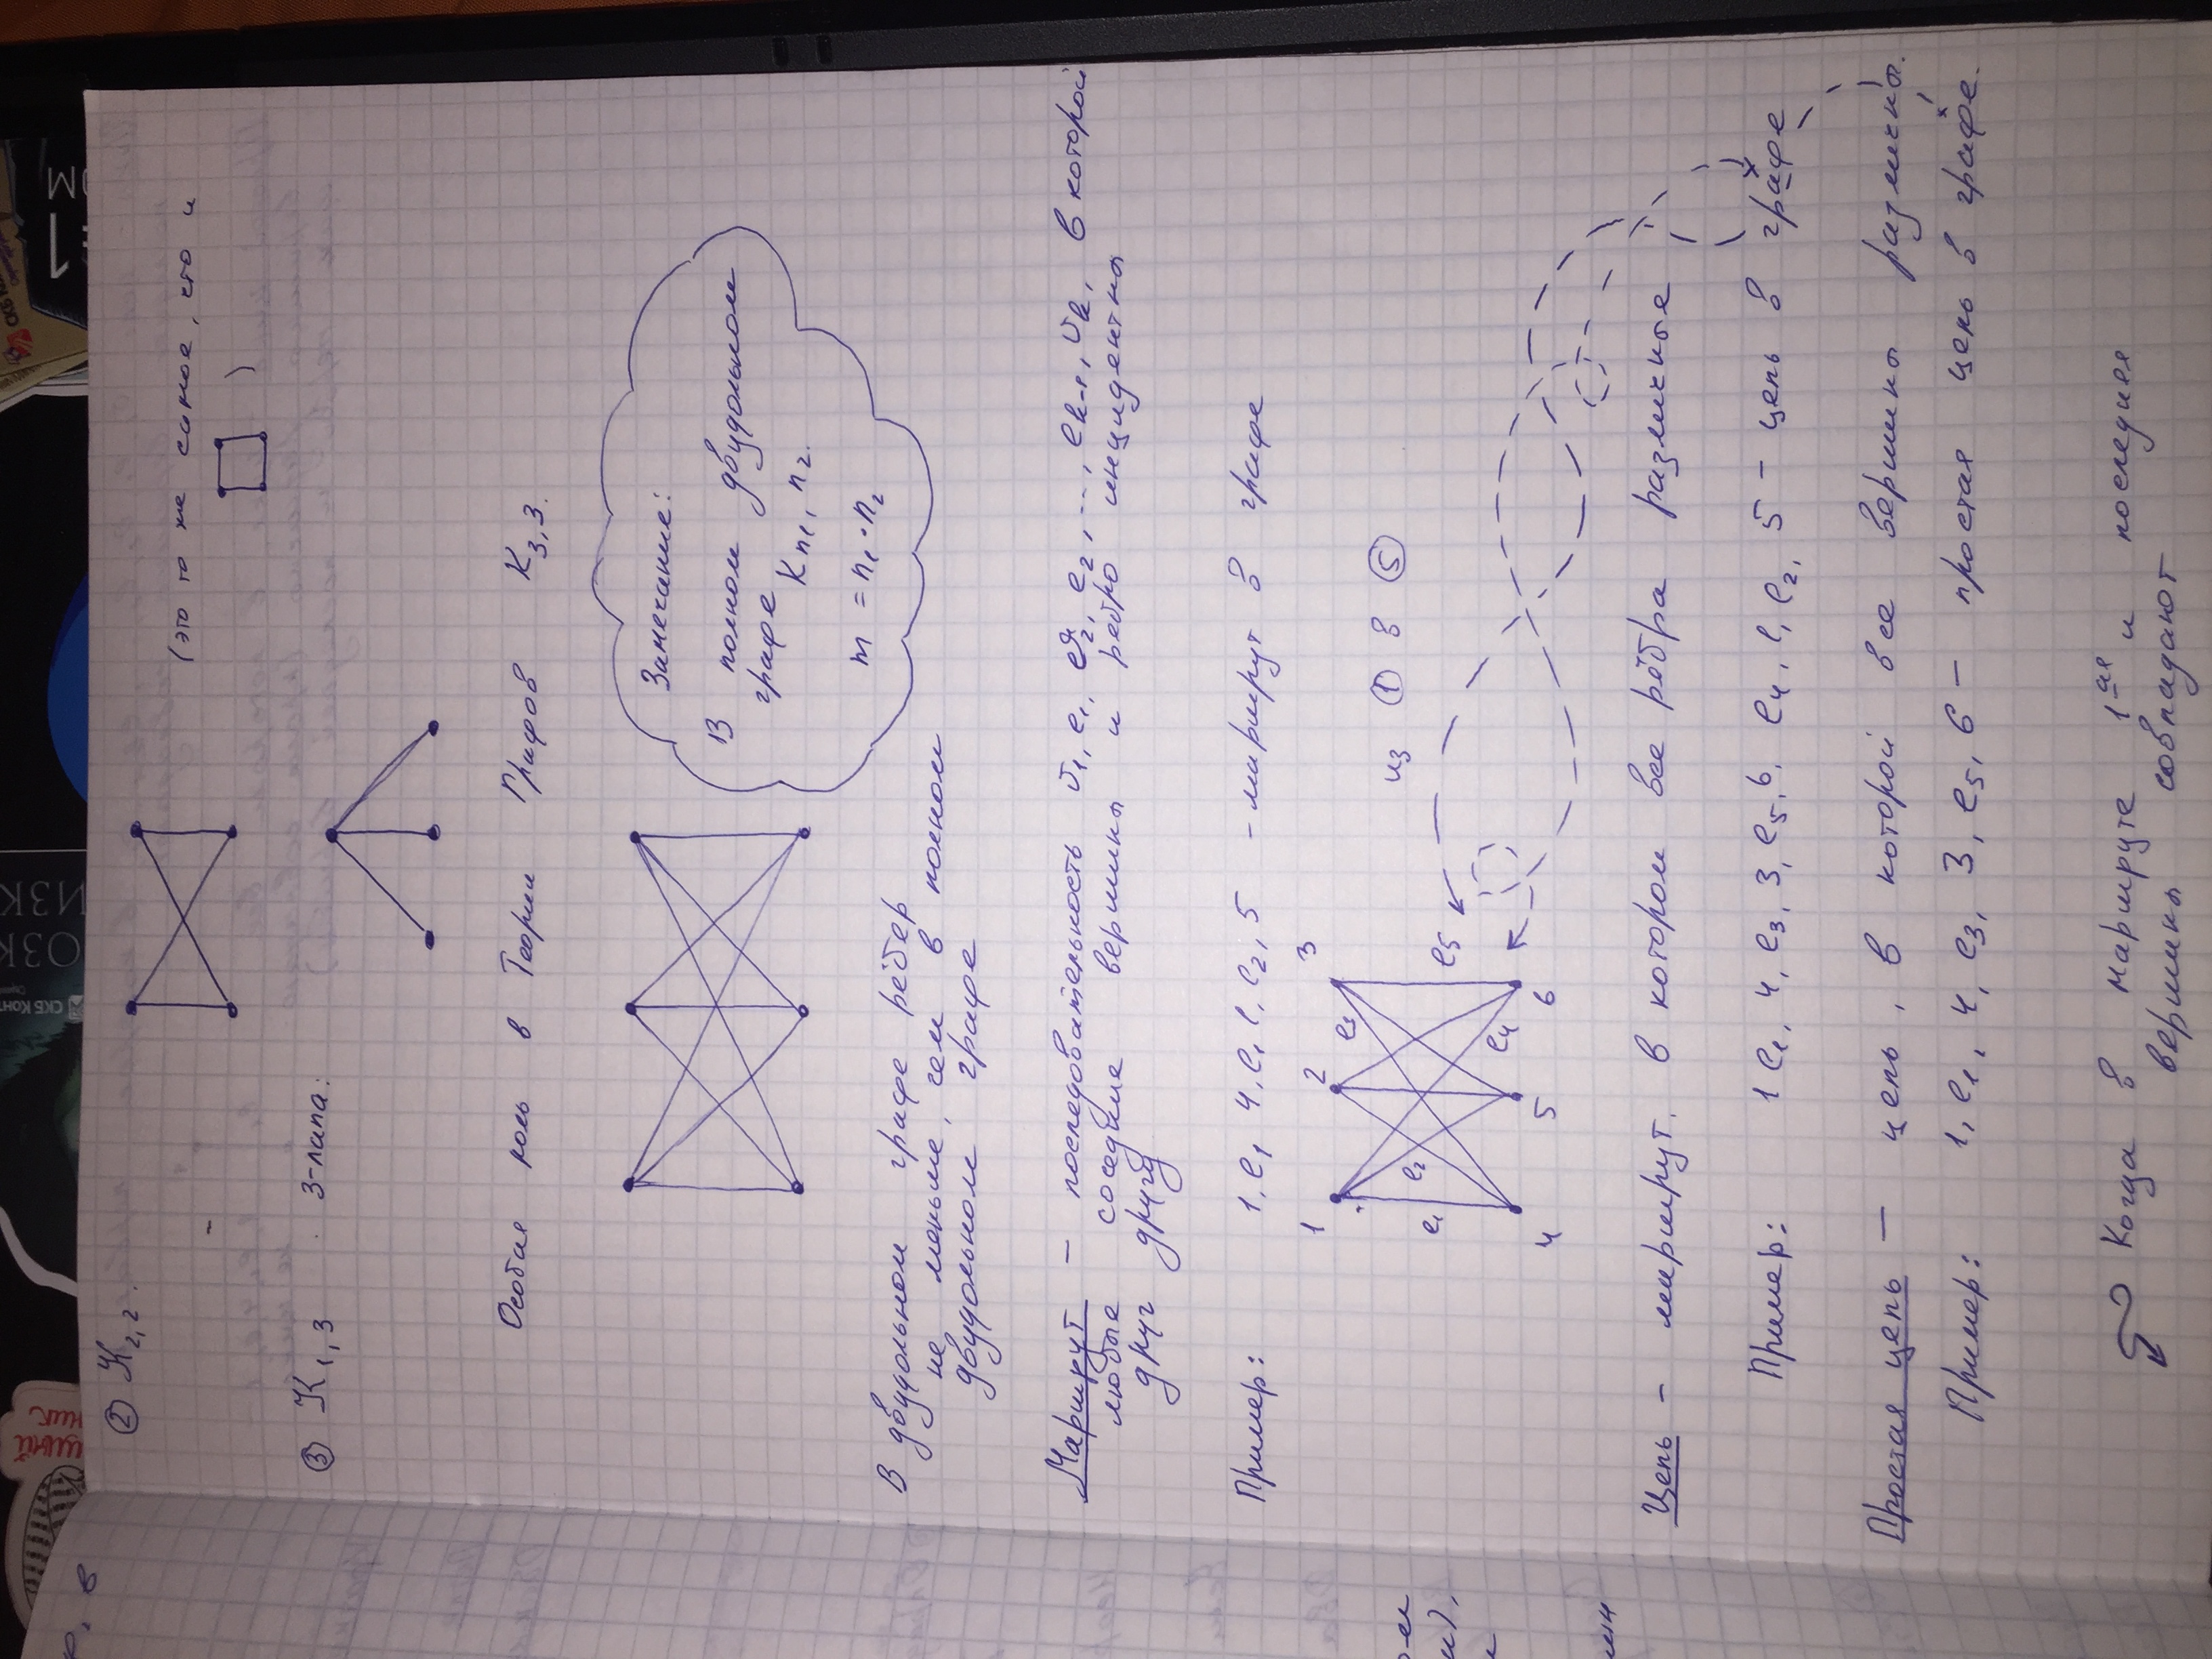 шный
ник
СКБ Конт
ОЗК
ИЗК
СКБ Ко
№1
ОМ
р, в
② K2,2.
(это то же самое, что и
)
③ K1,3 3-лапа:
Особая роль в Теории Графов K3,3.
Замечание:
В полном двудольном
графе
Kn1, n2.
m = n1·n2
В двудольном графе рёбер
не меньше, чем в полном
двудольном графе
Маршрут – последовательность v1, e1, v2, e2, ..., ek-1, vk, в которой
любые соседние вершины и ребро инцидентны
друг другу
Пример: 1, e1 4, e1 1, e2, 5 – маршрут в графе
1 2 3
e3
e2
e1
e5
e4
4 5 6
из ① в ⑤
Цепь – маршрут, в котором все рёбра различные
Пример: 1 e1, 4, e3, 3, e5, 6, e4, 1, e2, 5 – цепь в графе
Простая цепь – цепь, в которой все вершины различны.
Пример: 1, e1, 4, e3, 3, e5, 6 – простая цепь в графе.
Когда в маршруте 1ая и последняя
вершины совпадают